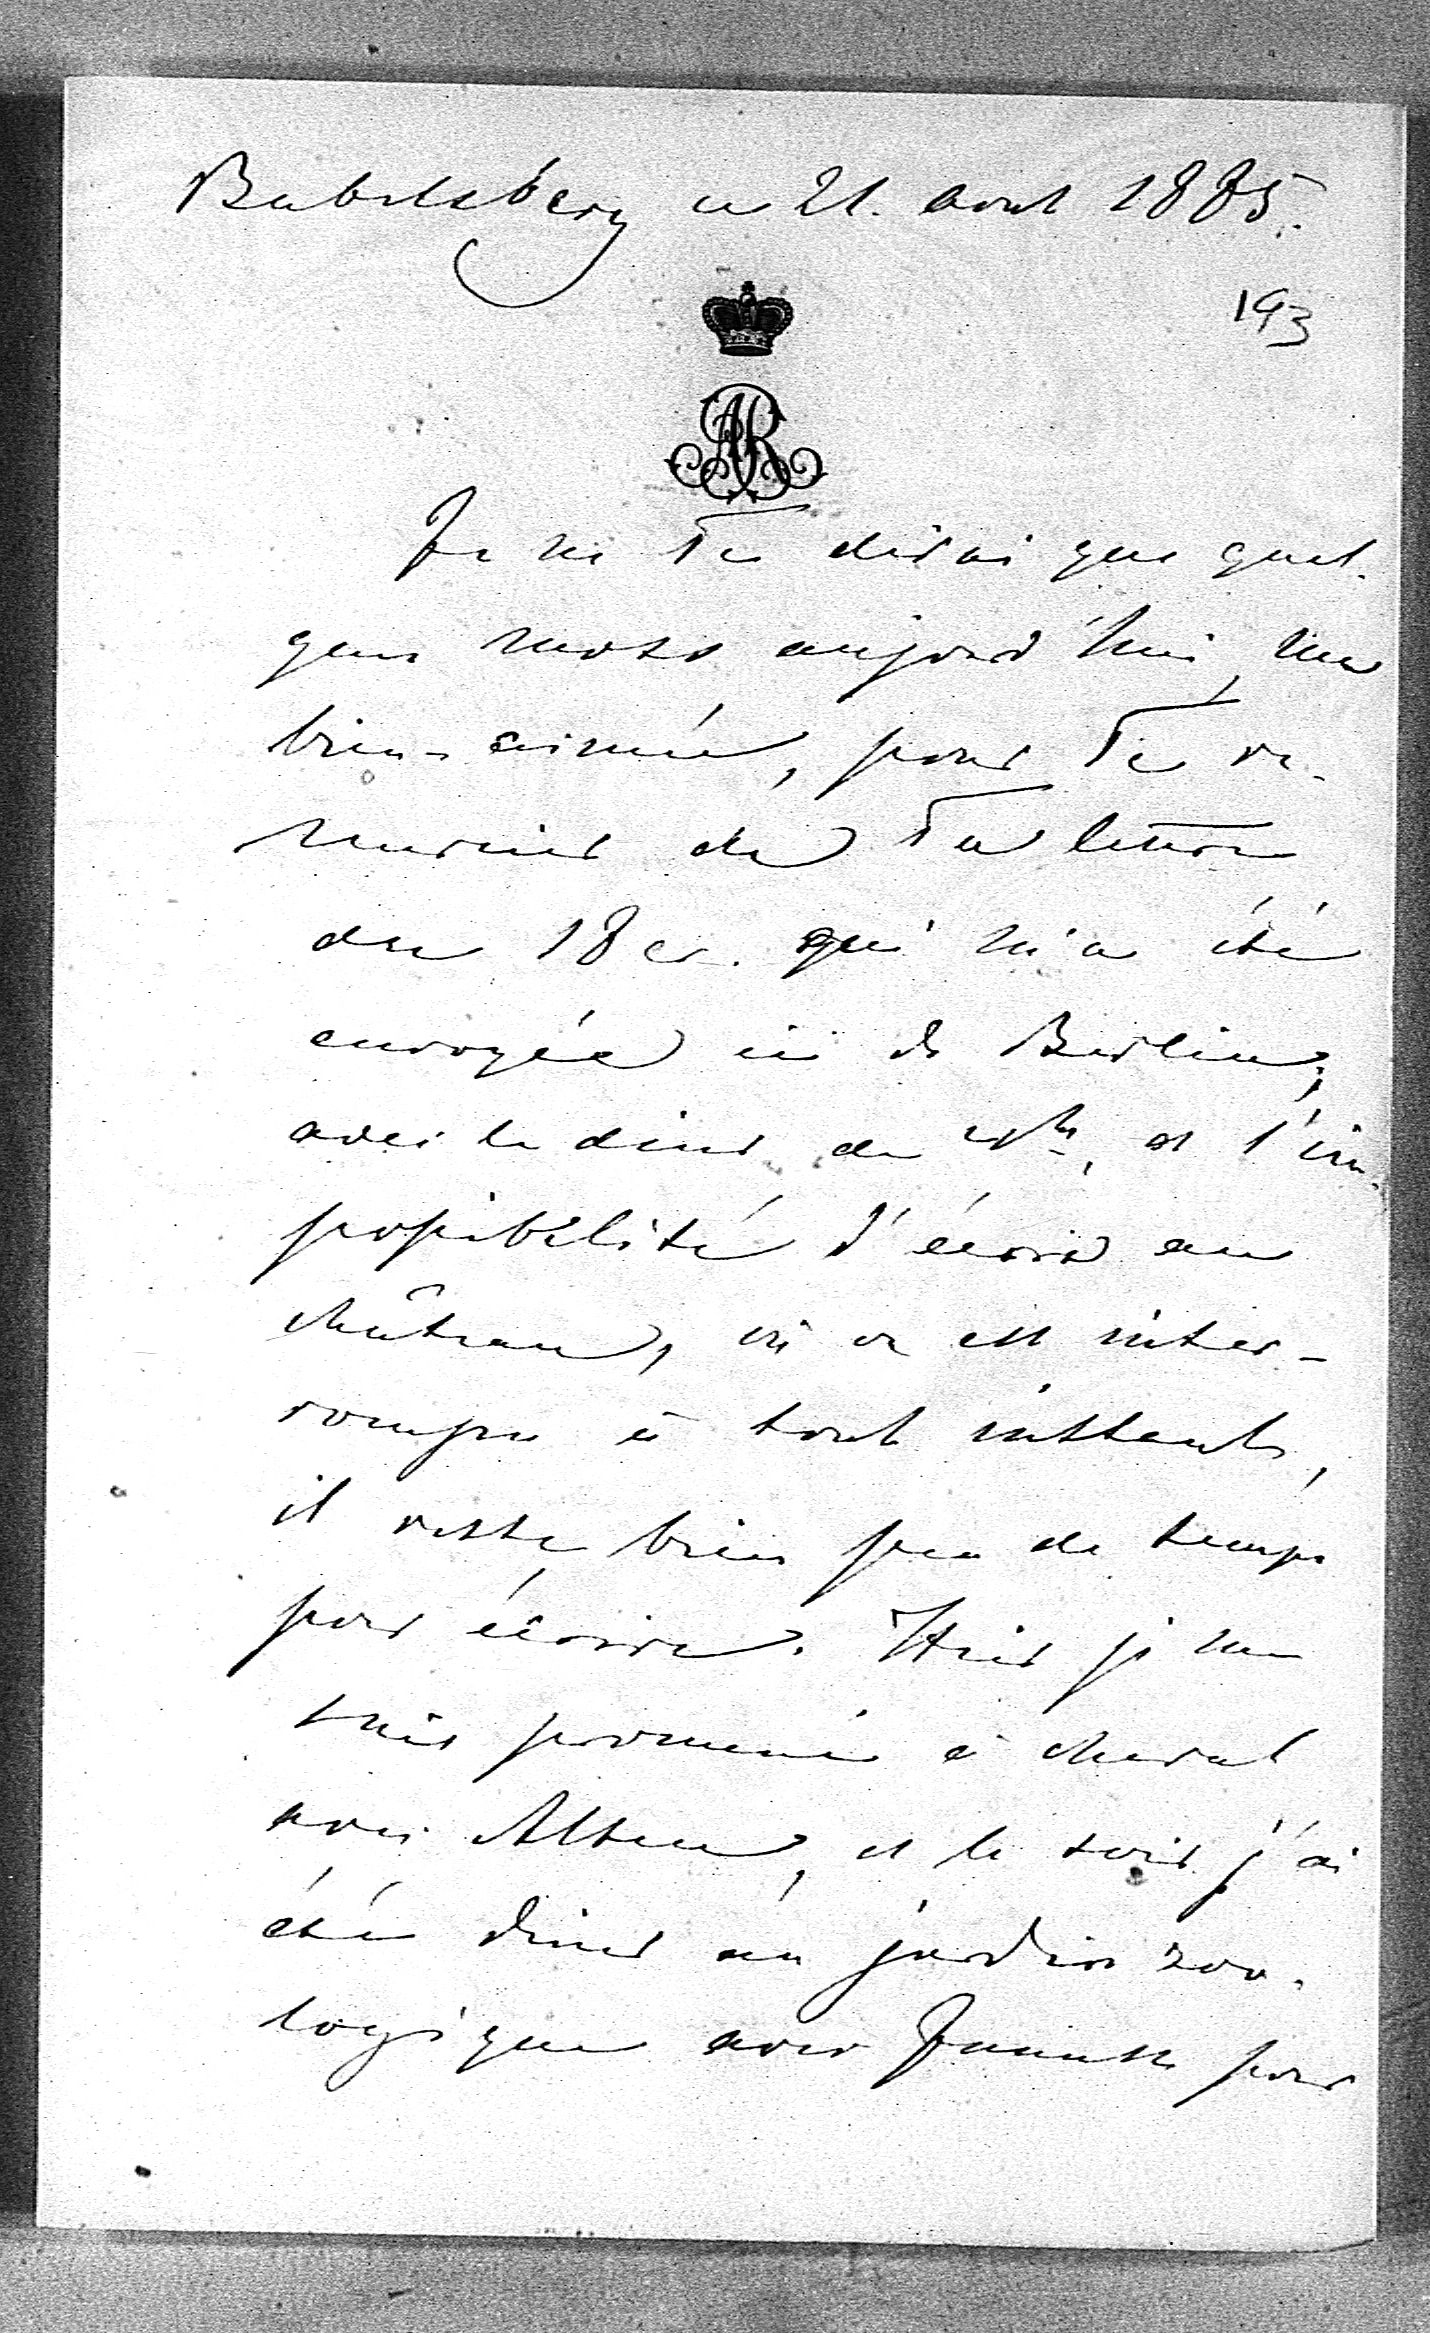 Babelsberg ce 21. aout 1885.
193
AR
Je ne Te dirai que quel-
ques mots aujourd'hui, ma
bien-aimée, pour Te re-
mercier de Ta lettre
du 18 cr. qui m'a été
envoyée ici de Berlin;
avec le diner de 4h, et l'im-
possibilité d'écrire au
château, où on est inter-
rompu à tout instant,
il reste bien peu de temps
pour écrire. Hier je me
suis promené à cheval
avec Alten, et le soir j'ai
été diner au jardin zoo-
logique avec pour